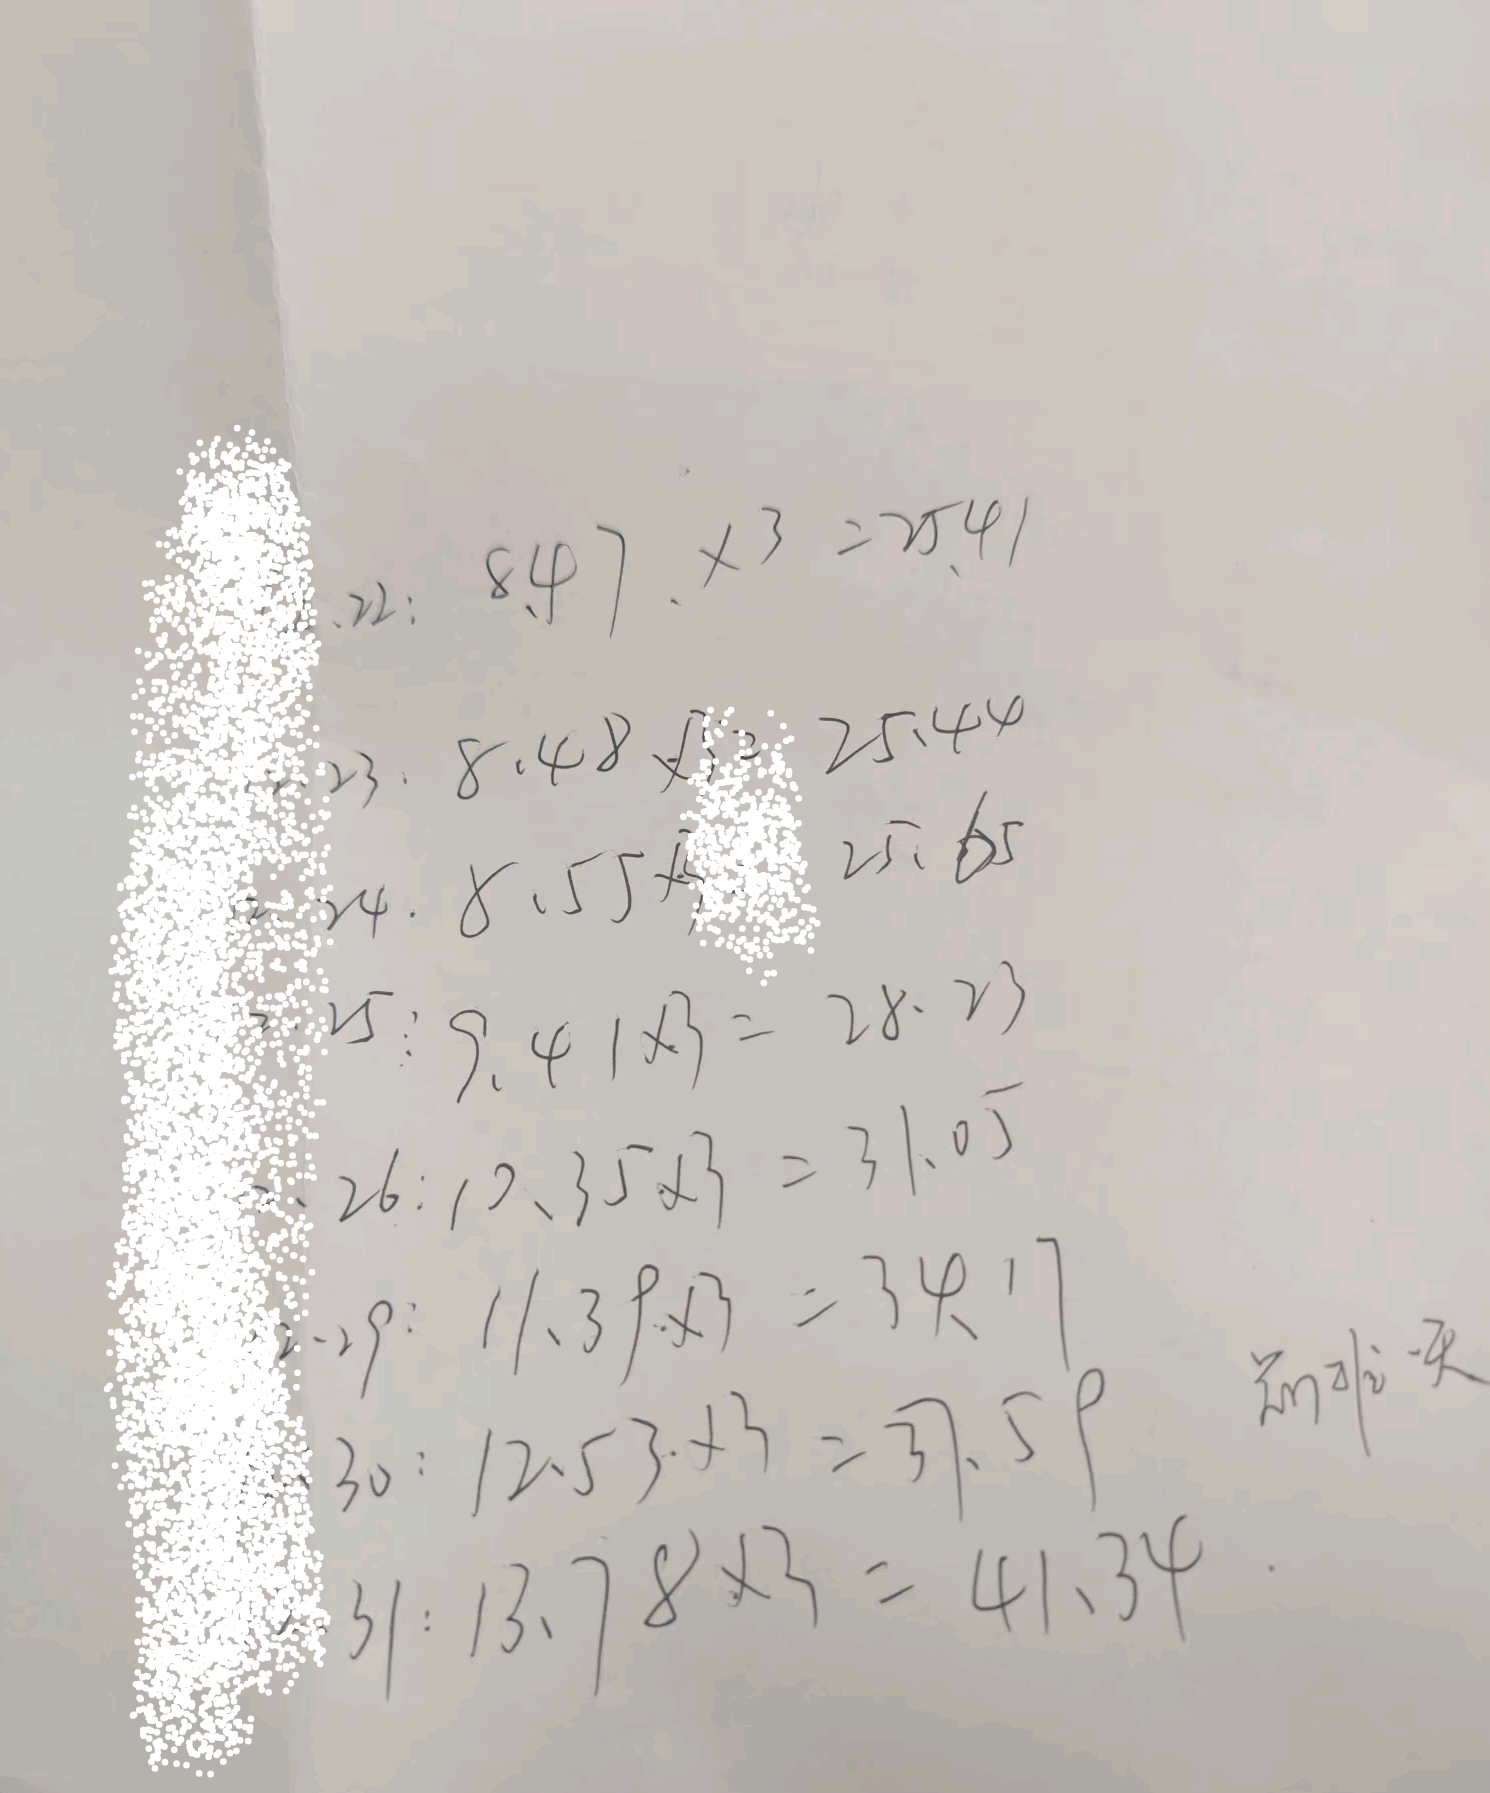 .22: 8.47 × 3 = 25.41
2.23. 8.48 × 3 = 25.44
2.24. 8.55 × 3 25.65
2.25: 9.41 × 3 = 28.23
2.26: 10.35 × 3 = 31.05
2.29: 11.39 × 3 = 34.17
30: 12.53 × 3 = 37.59
31: 13.78 × 3 = 41.34